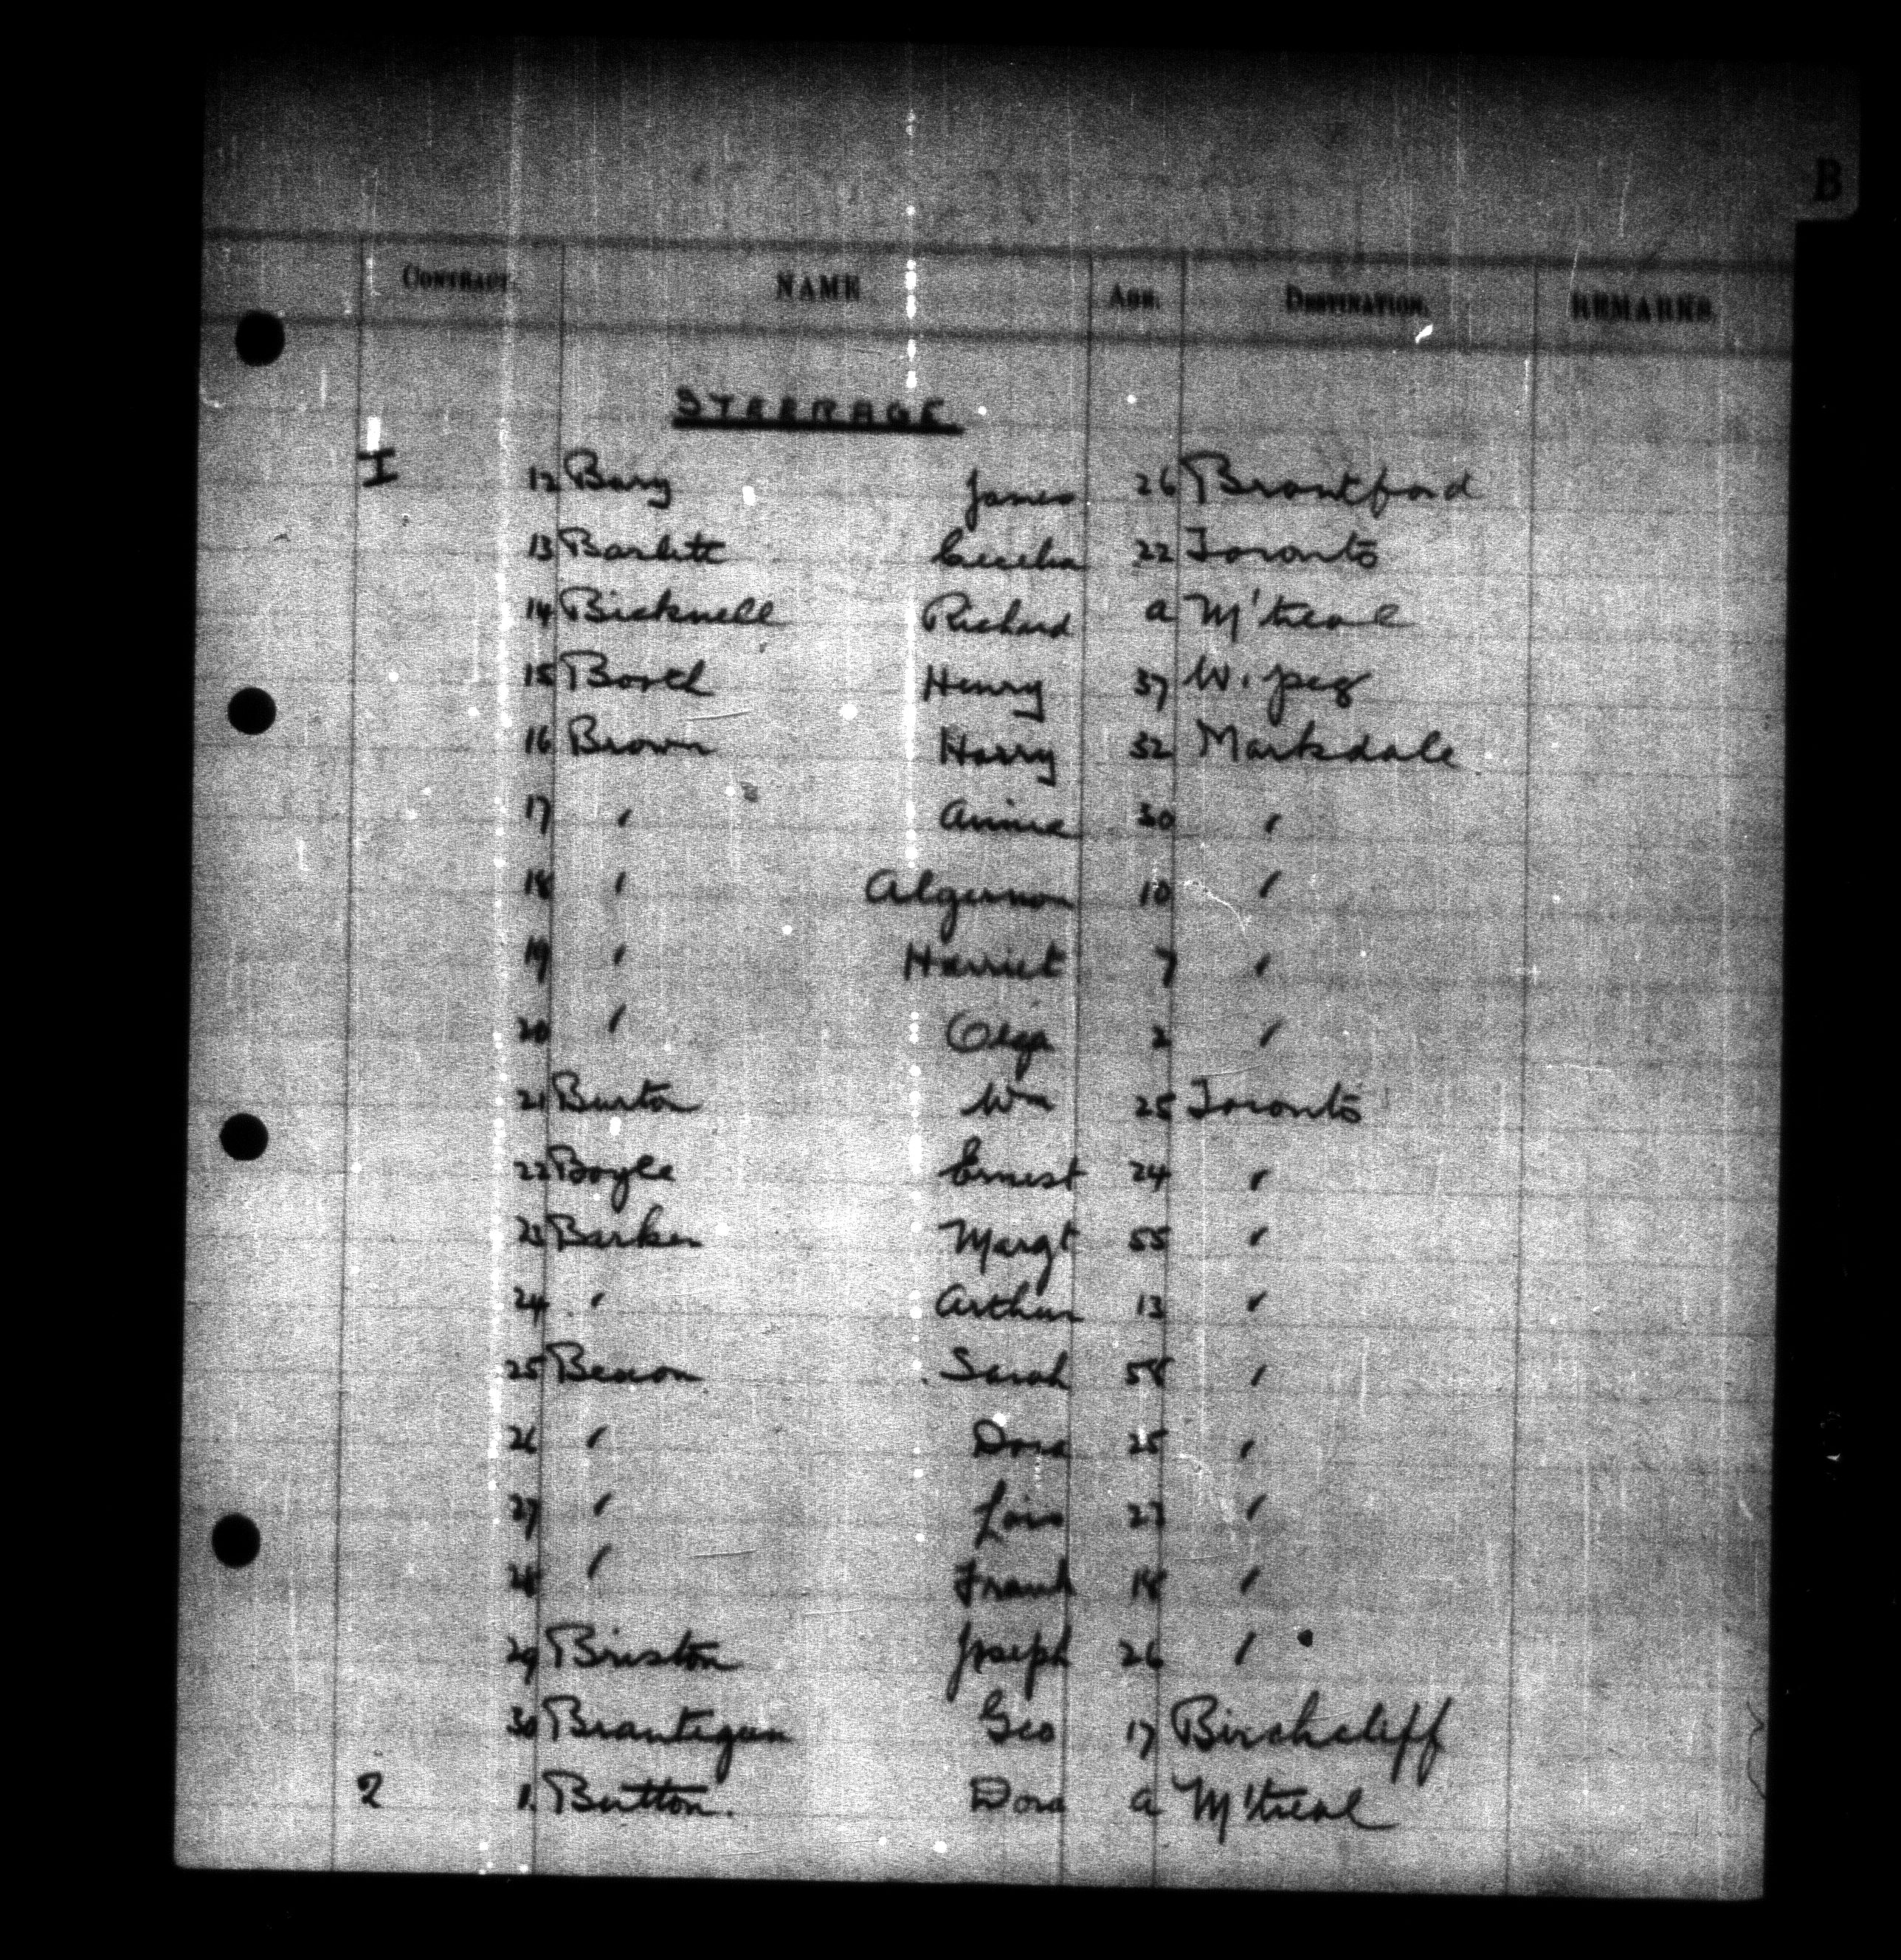 B
CONTRACT. NAME AGE. DESTINATION. REMARKS.
STEERAGE
I 12 Bary James 26 Brantford
13 Bartlett Cecelia 22 Toronto
14 Bicknell Richard a M'treal
15 Booth Henry 37 W.peg
16 Brown Harry 32 Markdale
17 " Annie 30 "
18 " Algernon 10 "
19 " Harriet 7 "
20 " Olga 2 "
21 Burton Wm 25 Toronto
22 Boyle Ernest 24 "
23 Barker Margt 55 "
24 " Arthur 13 "
25 Benson Sarah 58 "
26 " Dora 25 "
27 " Lois 23 "
28 " Frank 18 "
29 Briston Joseph 26 "
30 Brantigan Geo 17 Birchcliff
2 1. Button. Dora a M'treal